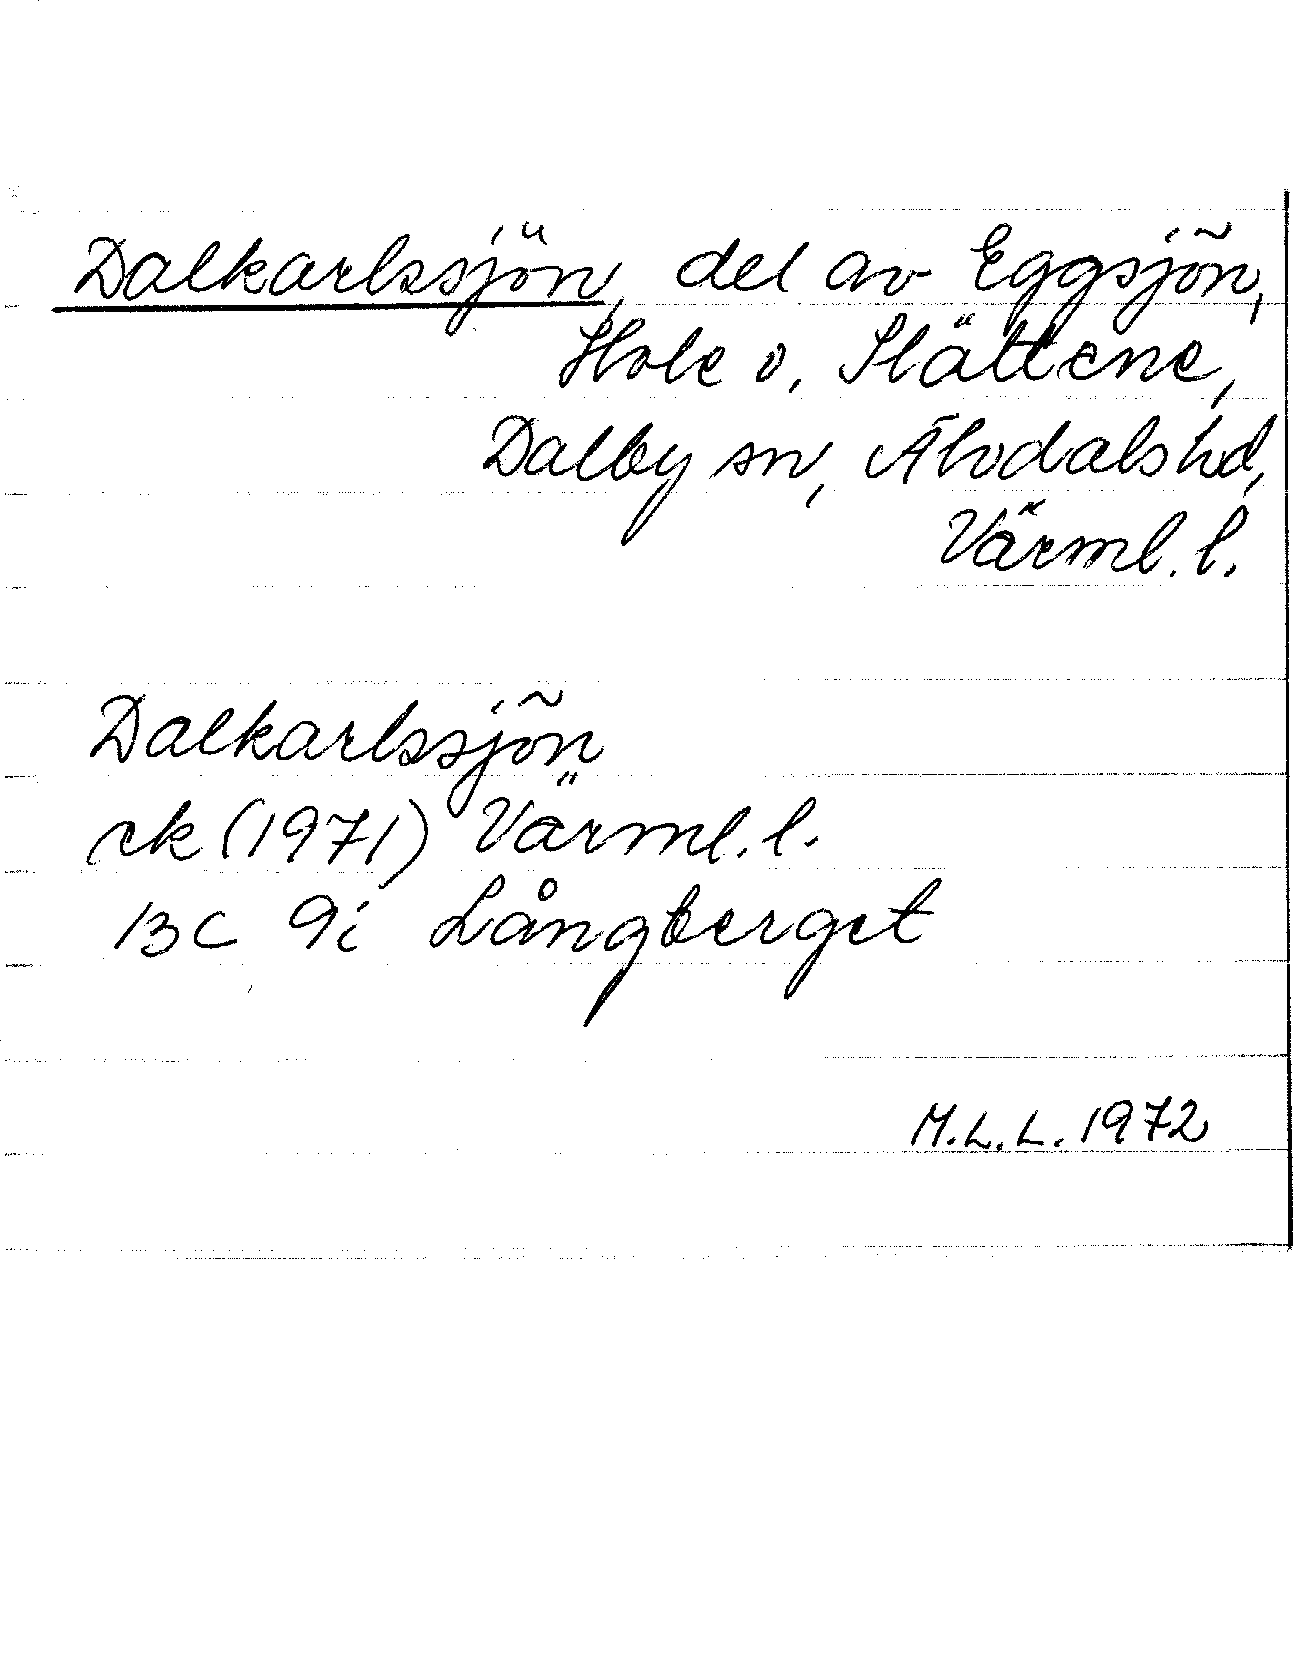 Dalkarlssjön, del av Eggsjön,
Hole o. Slättene,
Dalby sn, Älvdals hd,
Värml. l.
Dalkarlssjön
ek (1971) Värml. l.
13C 9i Långberget
M.L.L. 1972